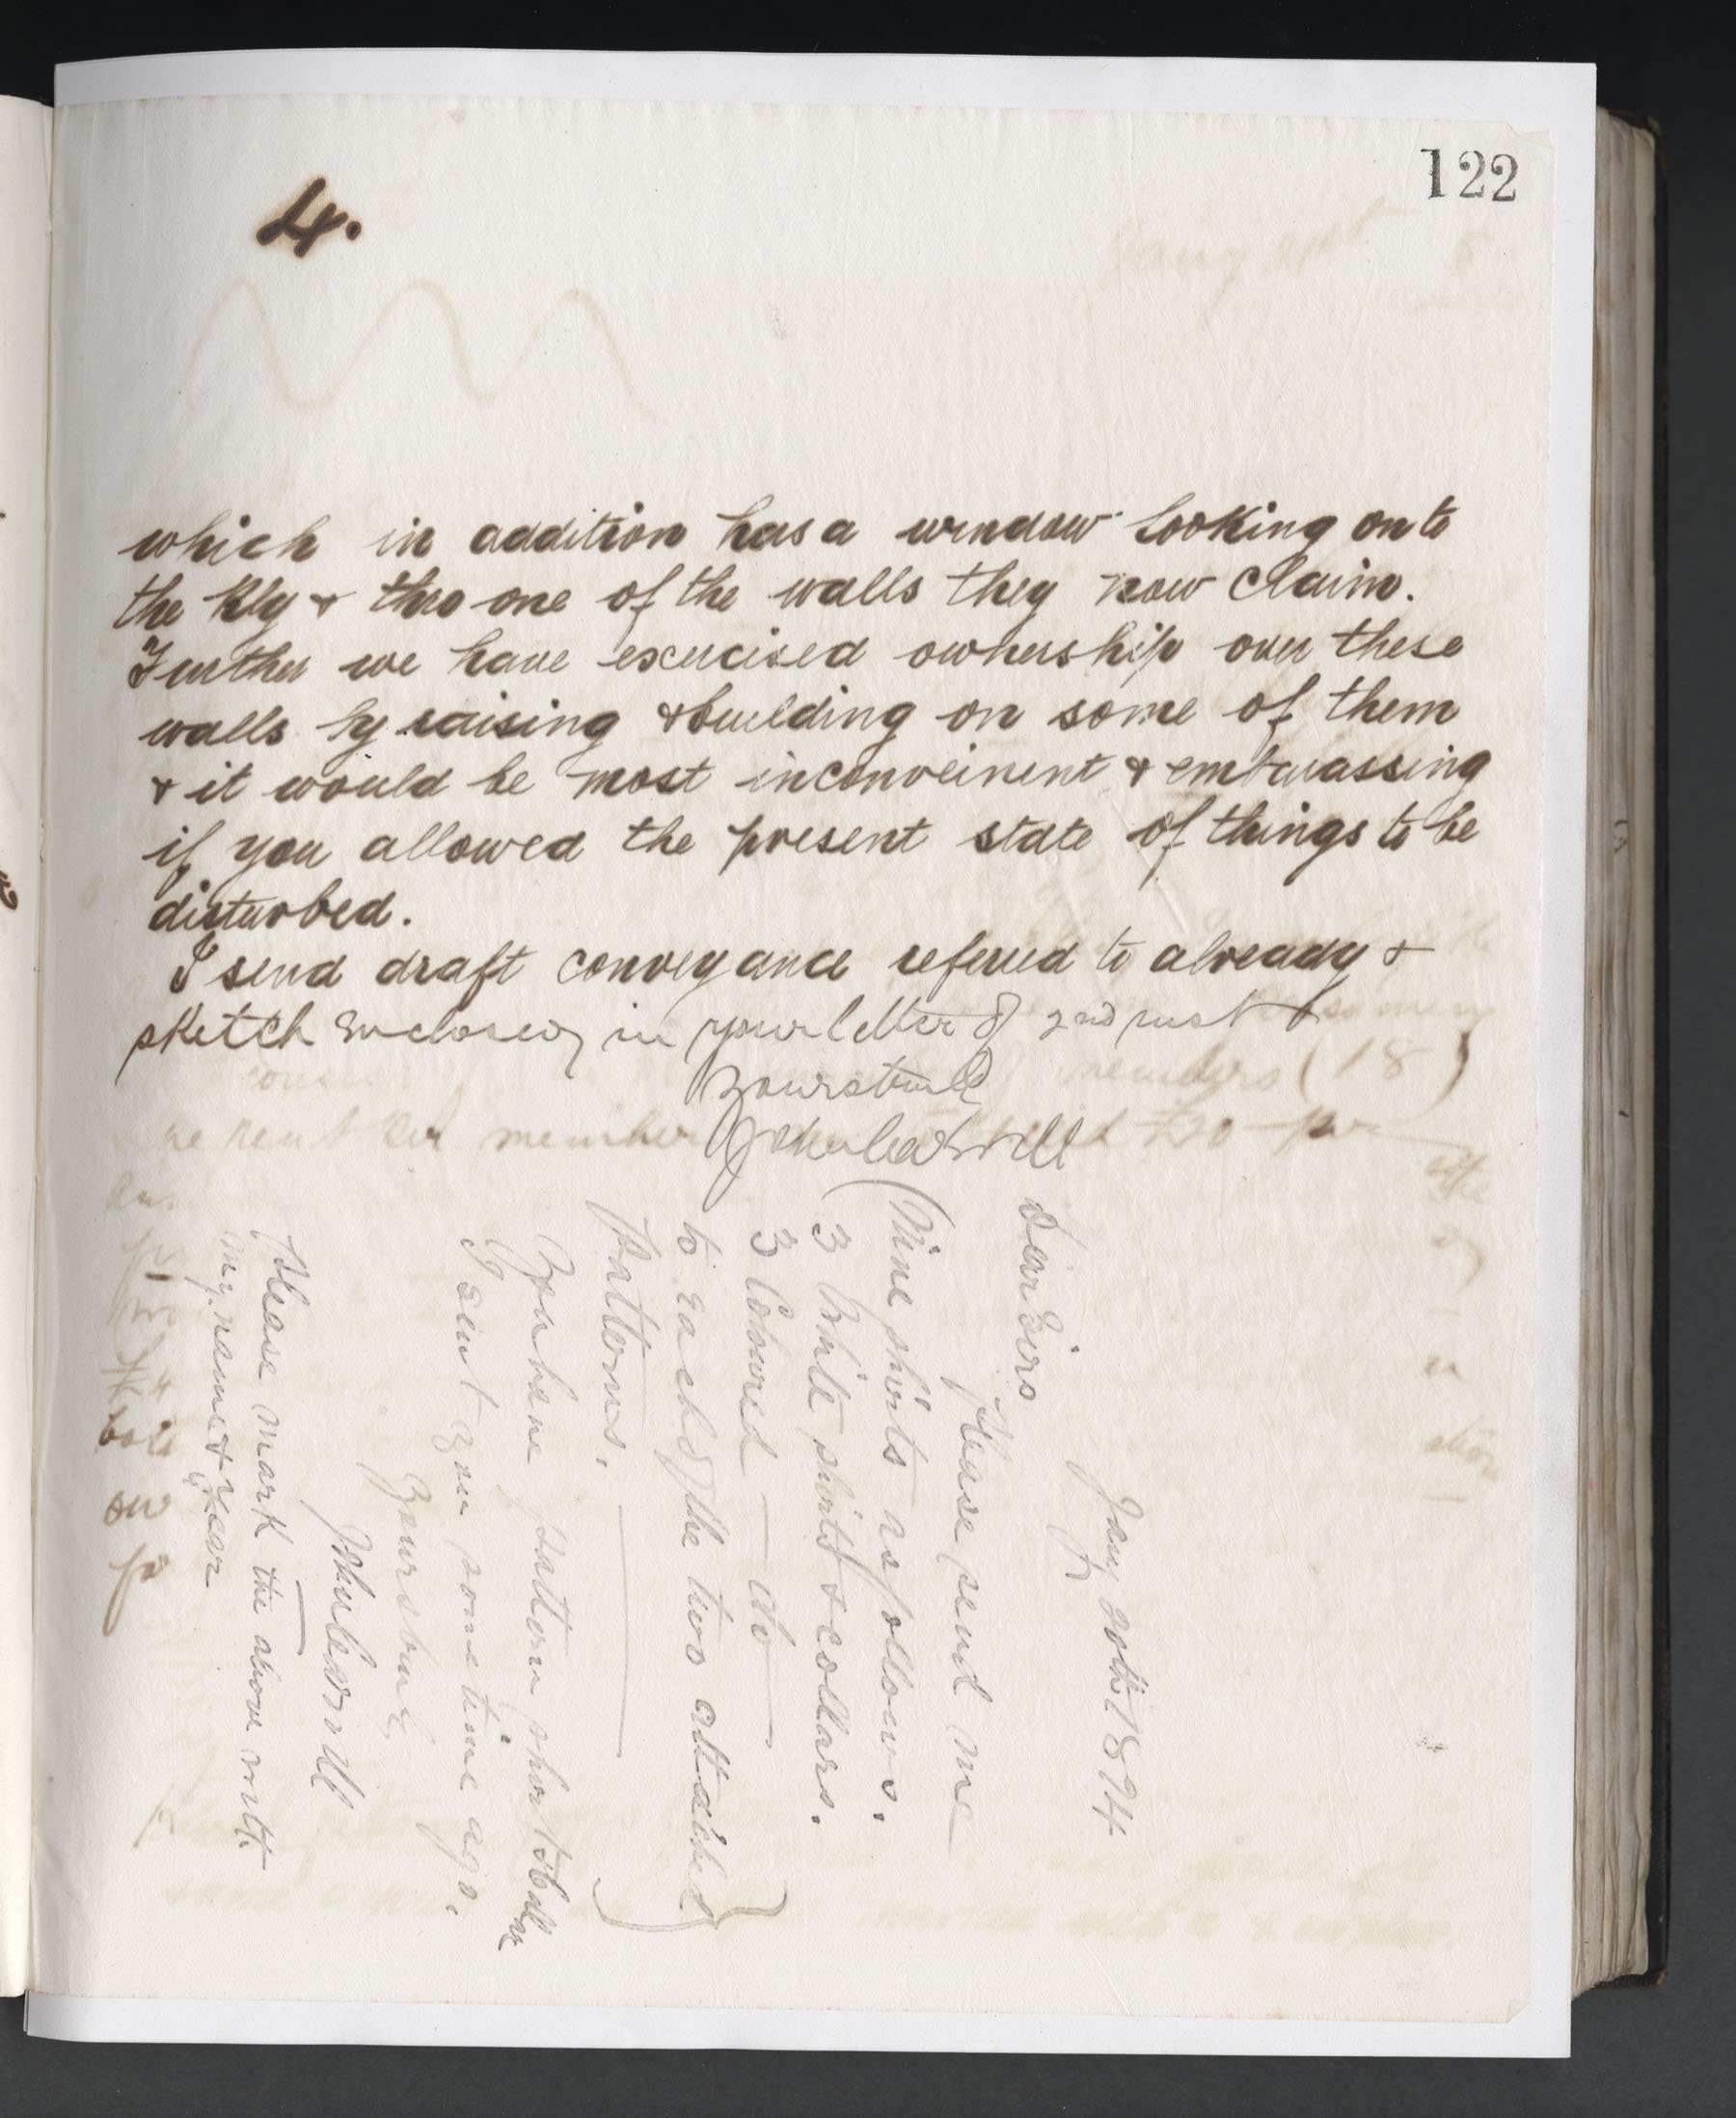 122
4.
which in addition has a window looking on to
the Rly & thro one of the walls they now claim.
Further we have excercised ownership over these
walls by raising & building on some of them
& it would be most inconveinent & embarassing
if you allowed the present state of things to be
disturbed.
I send draft conveyance referred to already &
sketch enclosed in your letter of 2nd inst
Yours truly
Jany 20th 1894
Dear Sirs
Please send me
Nine shirts as follows.
3 White shirts & collars.
3 Coloured — do —
to each of the two attached
patterns.
You have pattern shirt & collar
I sent you some time ago.
Yours truly
Please mark the above with
my name & year